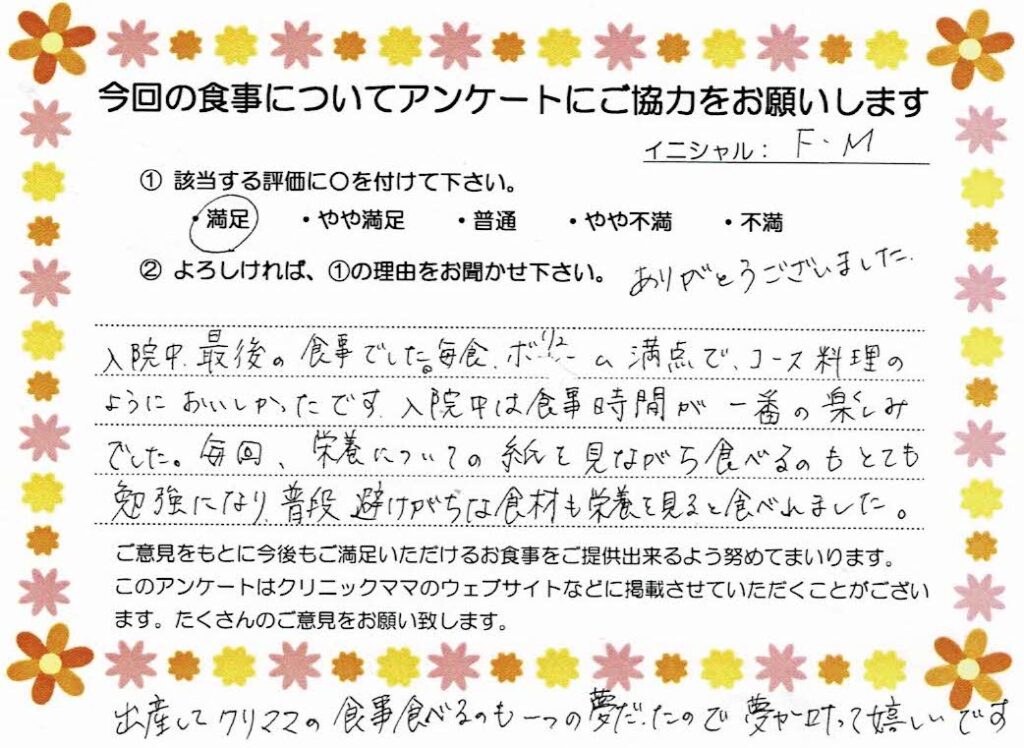 今回の食事についてアンケートにご協力をお願いします
イニシャル： F・M
① 該当する評価に〇を付けて下さい。
・満足 ・やや満足 ・普通 ・やや不満 ・不満
② よろしければ、①の理由をお聞かせ下さい。 ありがとうございました。
入院中、最後の食事でした。毎食、ボリューム満点で、コース料理の
ようにおいしかったです。入院中は食事時間が一番の楽しみ
でした。毎回、栄養についての紙を見ながら食べるのもとても
勉強になり、普段避けがちな食材も栄養を見ると食べれました。
ご意見をもとに今後もご満足いただけるお食事をご提供出来るよう努めてまいります。
このアンケートはクリニックママのウェブサイトなどに掲載させていただくことがござい
ます。たくさんのご意見をお願い致します。
出産してクリママの食事食べるのも一つの夢だったので夢が叶って嬉しいです